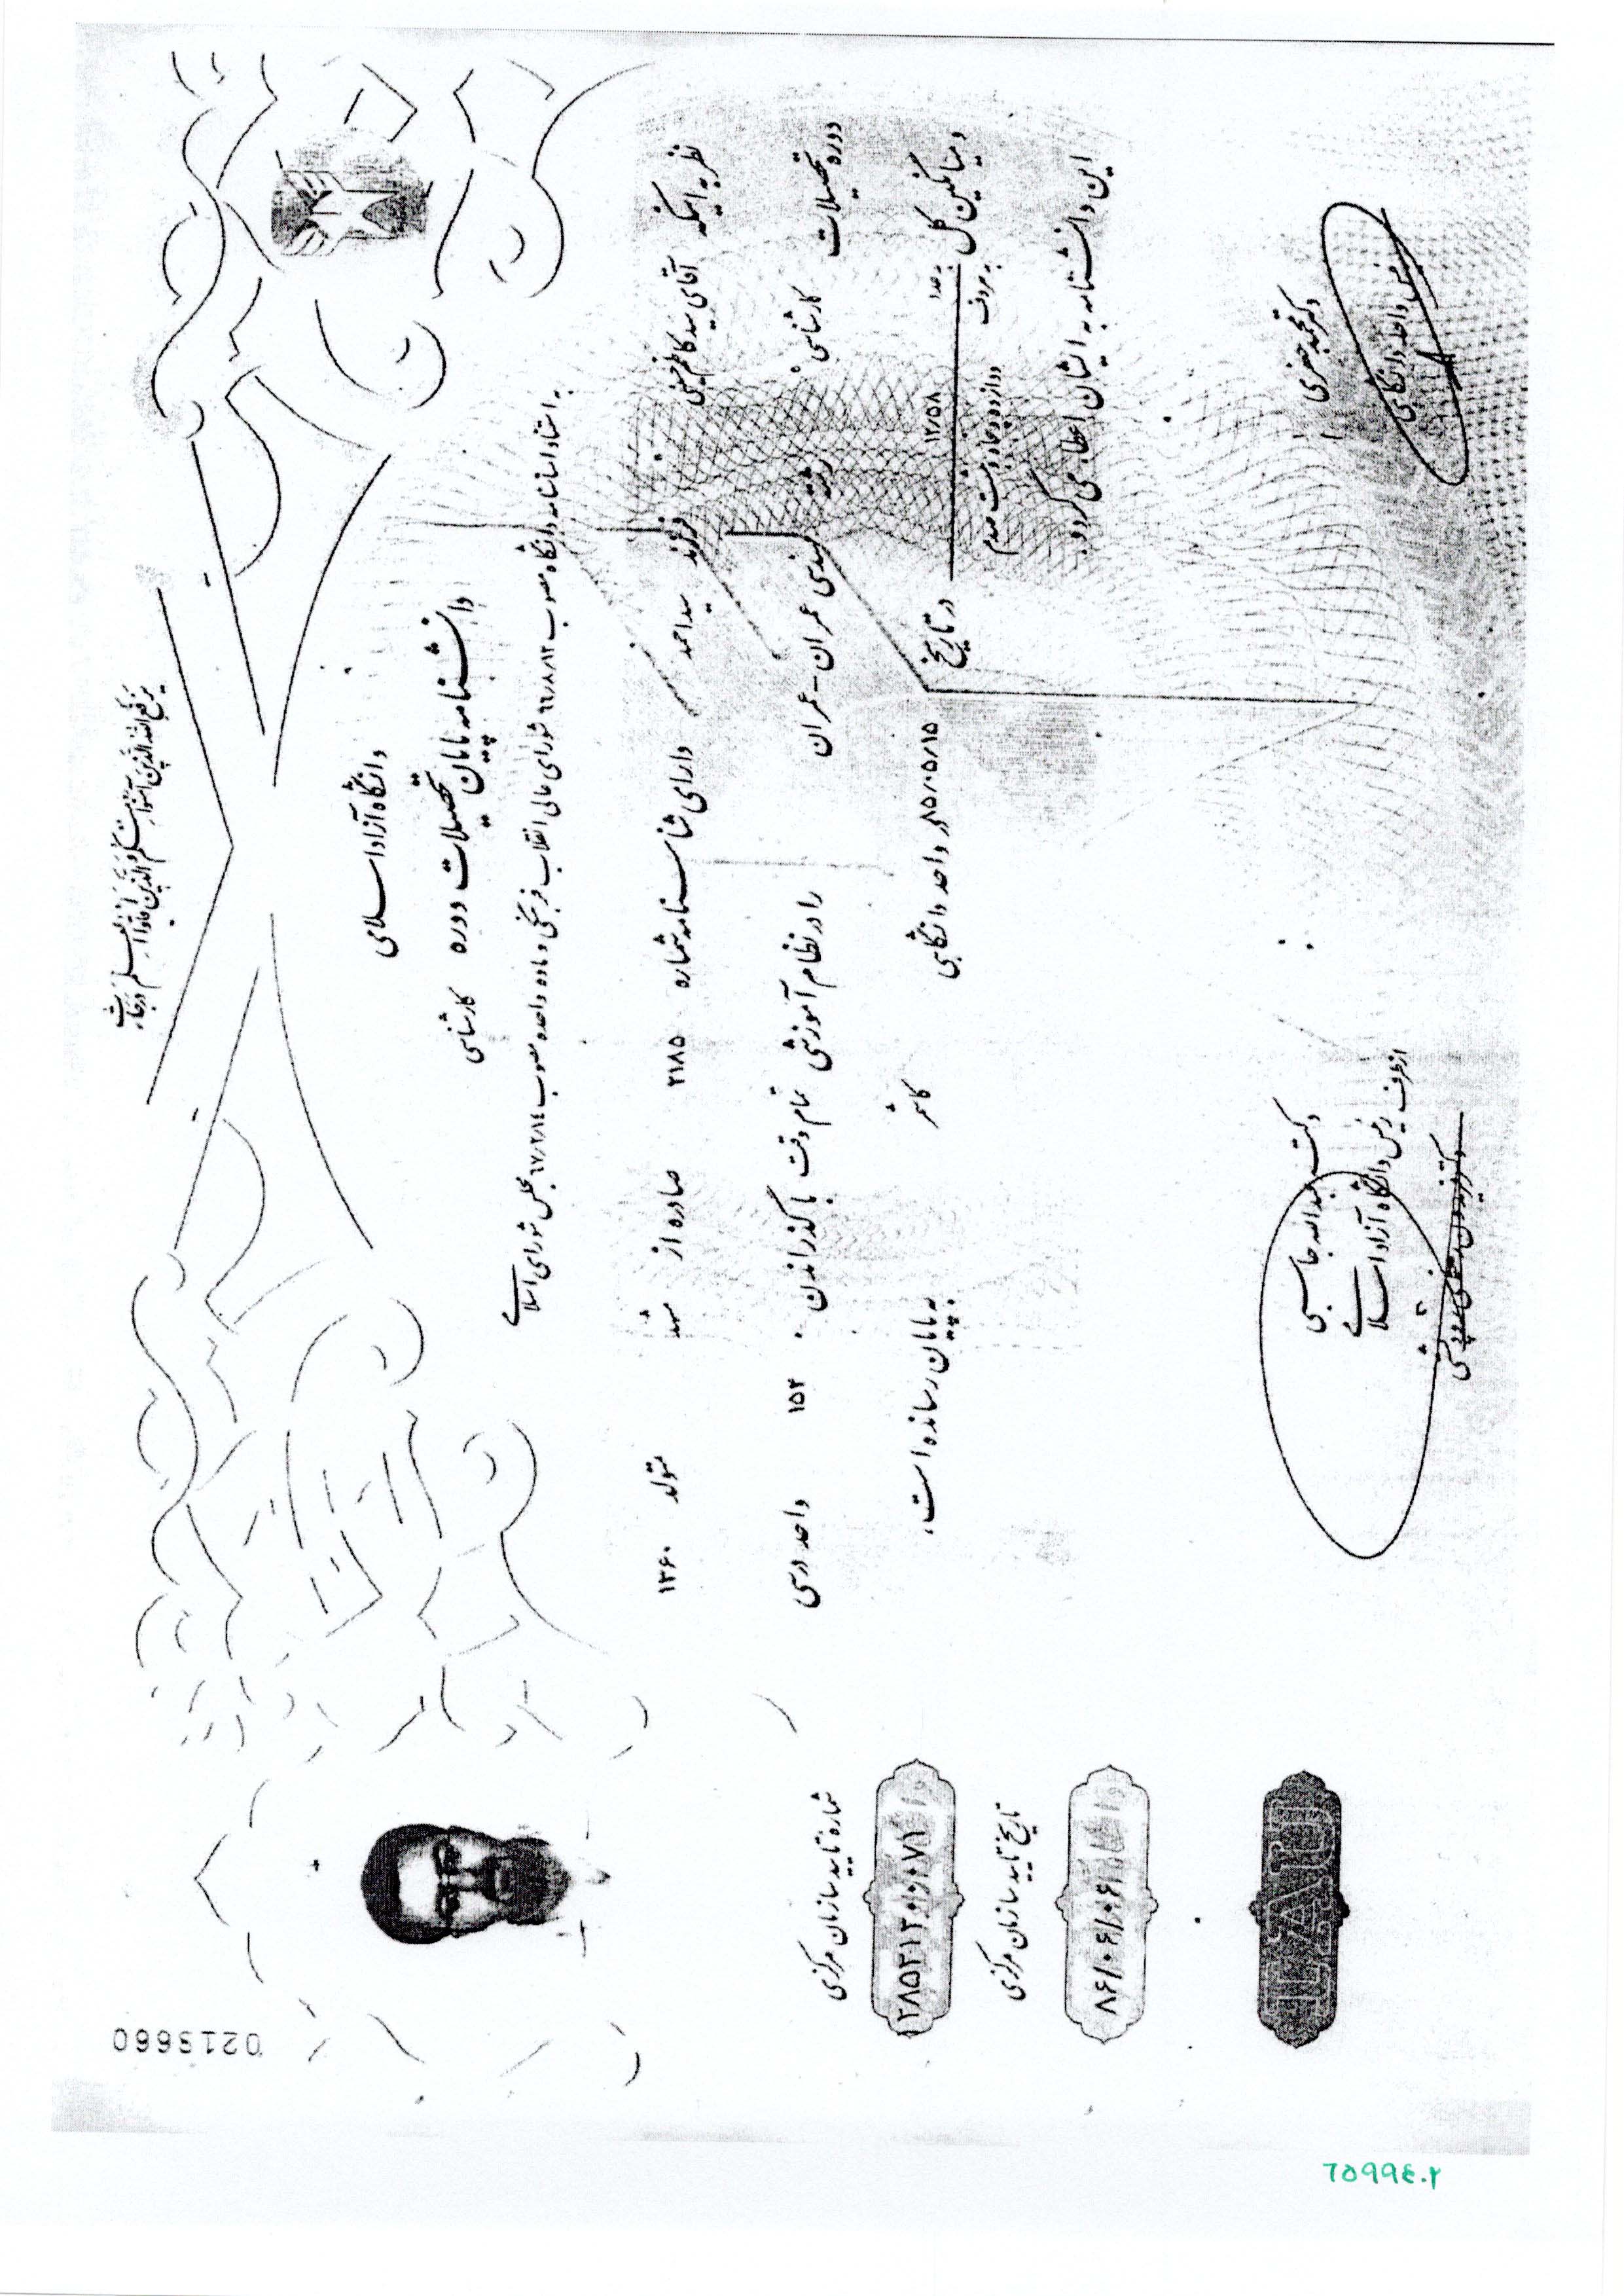 یرفع الله الذین آمنوا منکم والذین اوتوا العلم درجات
دانشگاه آزاد اسلامی
دانشنامه پایان تحصیلات دوره کارشناسی
به استناد اساسنامه دانشگاه مصوب ۶۶/۸/۱۲ شورای عالی انقلاب فرهنگی و ماده واحده مصوب ۶۷/۲/۱٤ مجلس شورای اسلامی
نظر به اینکه آقای سید کاظم حسینی فرزند سید احمد دارای شناسنامه شماره ۲۱۸۵ صادره از مشهد متولد ۱۳۶۰
دوره تحصیلات کارشناسی رشته مهندسی عمران-عمران را در نظام آموزشی تمام وقت با گذراندن ۱۵۲ واحد درسی
و میانگین کل به عدد ۱۲/۵۸ در تاریخ ۸۵/۰۵/۱۵ در واحد دانشگاهی کاشمر به پایان رسانده است.
به حروف دوازده و پنجاه و هشت صدم
این دانشنامه به ایشان اعطاء می گردد.
رئیس واحد دانشگاهی
دکتر عبدالله جاسبی
از طرف رئیس دانشگاه آزاد اسلامی
شماره تایید سازمان مرکزی
۱۲۸۵۲۱۲۰۰۰۷۱
تاریخ تایید سازمان مرکزی
۸۶/۰۶/۰۶
IAU
0219660
۲.٤۹۹۵۶